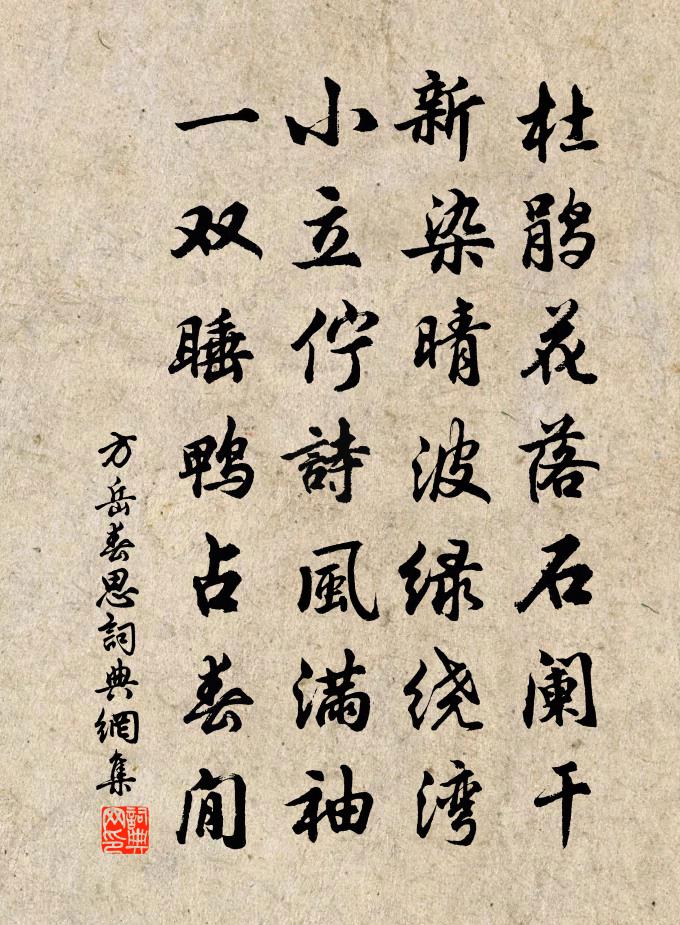 杜鹃花落石阑干
新染晴波绿绕湾
小立伫詩風满袖
一双睡鸭占春闲
方岳春思詞典網集
詞典网印